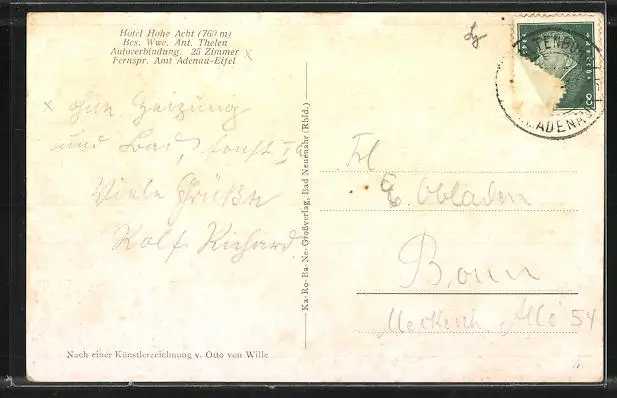 Hotel Hohe Acht (760 m)
Bes. Wwe. Ant. Thelen
Autoverbindung. 25 Zimmer
Fernspr. Amt Adenau-Eifel x
x ohne Heizung
und Bad, sonst Ia
Viele Grüße
Rolf Richard
Nach einer Künstlerzeichnung v. Otto von Wille
Ka-Ro-Ba-Ne-Großverlag, Bad Neuenahr (Rhld.)
8
ADENAU
Frl
E. Obladen
Bonn
Allé 54